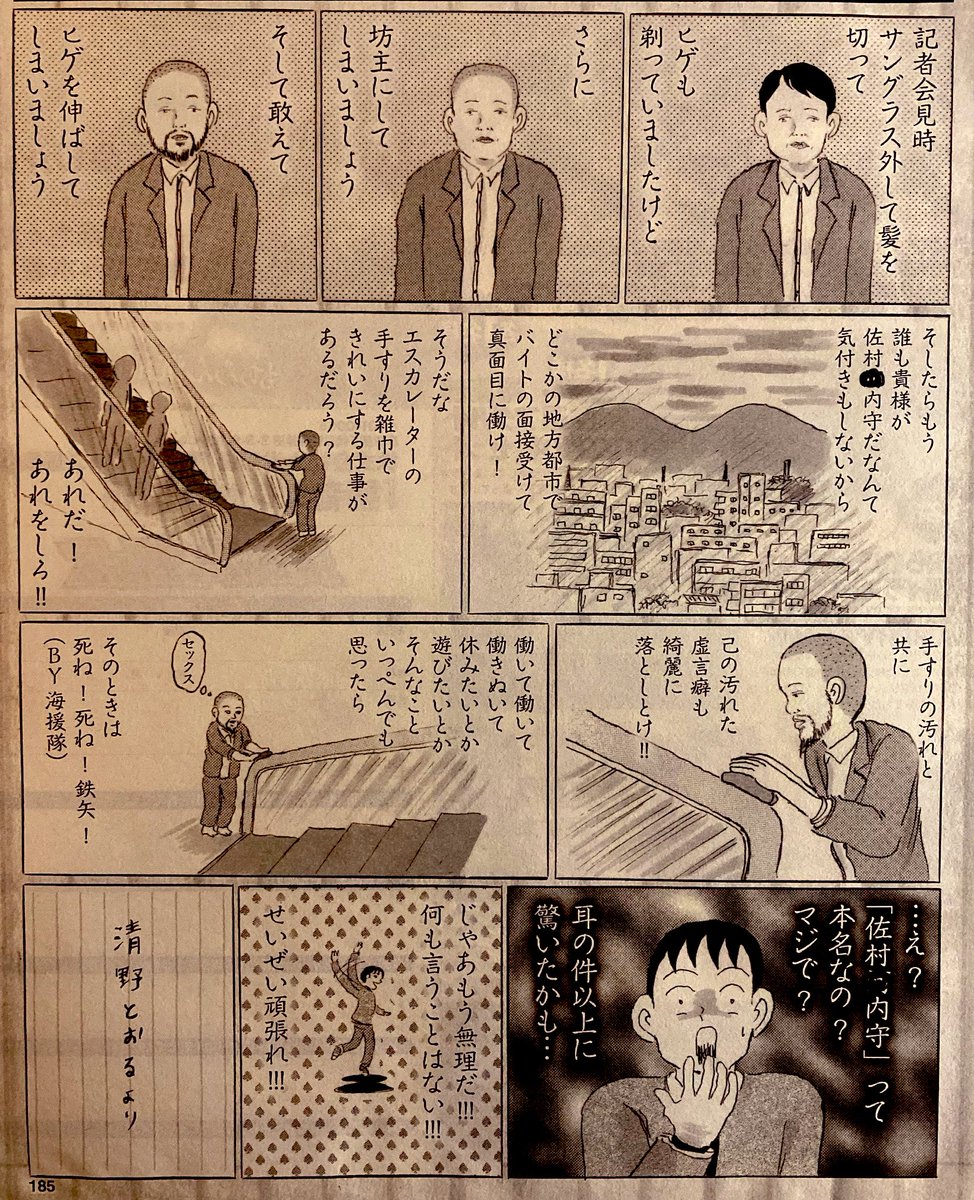 記者会見時
サングラス外して髪を
切って
ヒゲも
剃っていましたけど
さらに
坊主にして
しまいましょう
そして敢えて
ヒゲを伸ばして
しまいましょう
そしたらもう
誰も貴様が
佐村内守だなんて
気付きもしないから
どこかの地方都市で
バイトの面接受けて
真面目に働け!
そうだな
エスカレーターの
手すりを雑巾で
きれいにする仕事が
あるだろう?
あれだ!
あれをしろ!!
手すりの汚れと
共に
己の汚れた
虚言癖も
綺麗に
落としとけ!!
働いて働いて
働きぬいて
休みたいとか
遊びたいとか
そんなこと
いっぺんでも
思ったら
セックス
そのときは
死ね!死ね!鉄矢!
(BY海援隊)
…え?
「佐村内守」って
本名なの?
マジで?
耳の件以上に
驚いたかも…
じゃあもう無理だ!!!
何も言うことはない!!!
せいぜい頑張れ!!!
清野とおるより
185